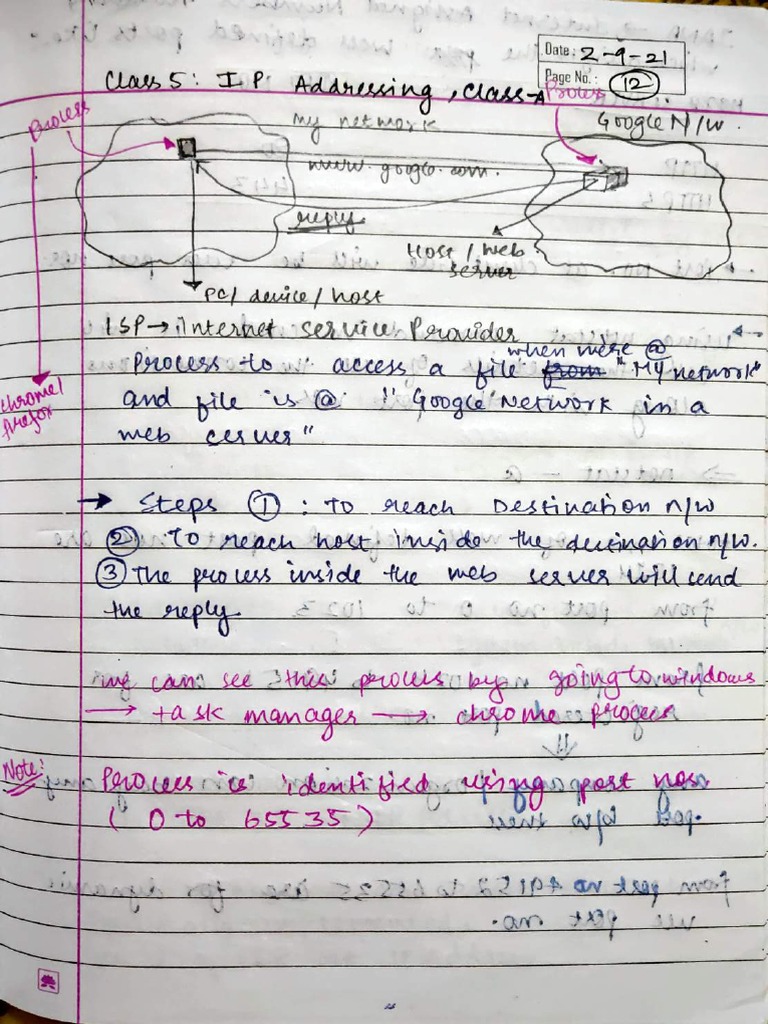 Date: 2-9-21
Page No.: 12
Class 5: IP Addressing, Class-A
Process
Process
my network
Google N/w.
www.google.com.
reply
Host / Web
server
PC/ device / host
ISP → Internet service Provider
when we're @
Process to access a file from "My network"
and file is @ "Google Network in a
web server"
chrome/
firefox
→ Steps ① : To reach Destination n/w
② To reach host inside the destination n/w.
③ The process inside the web server will send
the reply
we can see this process by going to windows
→ task manager → chrome process
Note:
Process is identified using port nos
( 0 to 65535 )